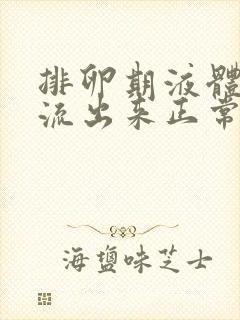 排卵期液體
流出来正常
海鹽味芝士